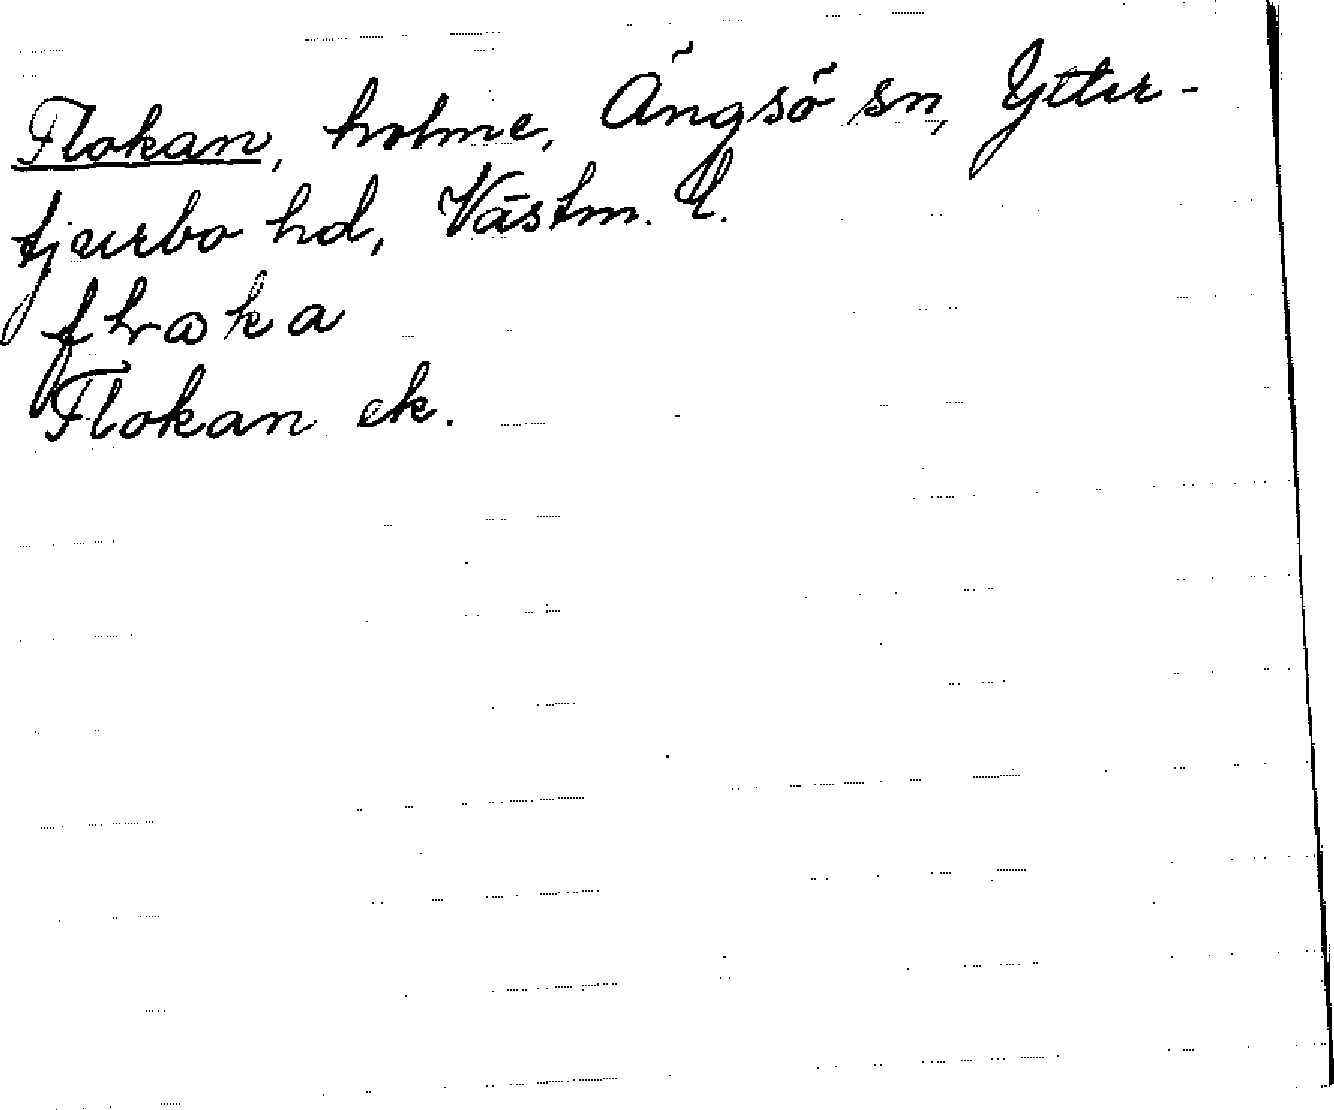 Flokan, holme, Ängsö sn, Ytter-
tjurbo hd, Västm. l.
Flokan ek.